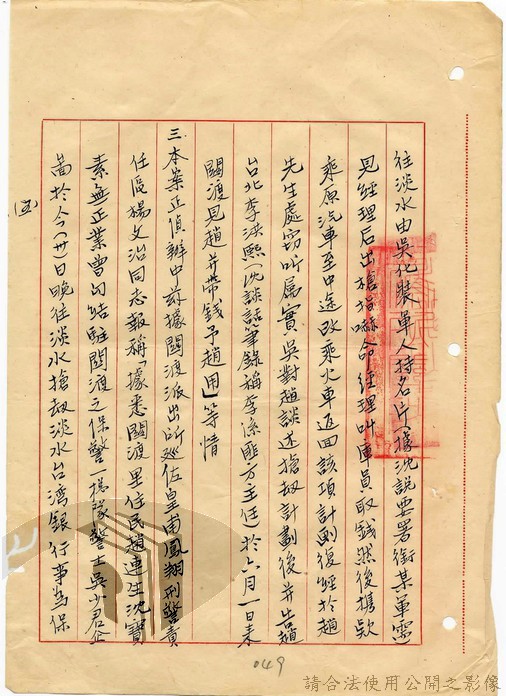 往淡水由吳化裝軍人持名片(據沈說要署銜某軍需)
見經理后出槍威嚇命經理叫庫員取錢然後携款
乘原汽車至中途改乘火車返回該項計劃復經於趙
先生處竊听屬實吳對趙談述搶劫計劃後并告趙
台北李洪熙(沈談話筆錄稱李係匪方主任)於六月一日來
關渡見趙并帶錢予趙用」等情
三、本案正偵辦中茲據關渡派出所巡佐皇甫鳳翔刑警責
任區楊文治同志報稱據悉關渡里住民趙連生沈寶
素無正業曾勾結駐關渡之保警一機隊警士吳少君企
圖於今(卅)日晚往淡水搶劫淡水台湾銀行事為保
049
請合法使用公開之影像